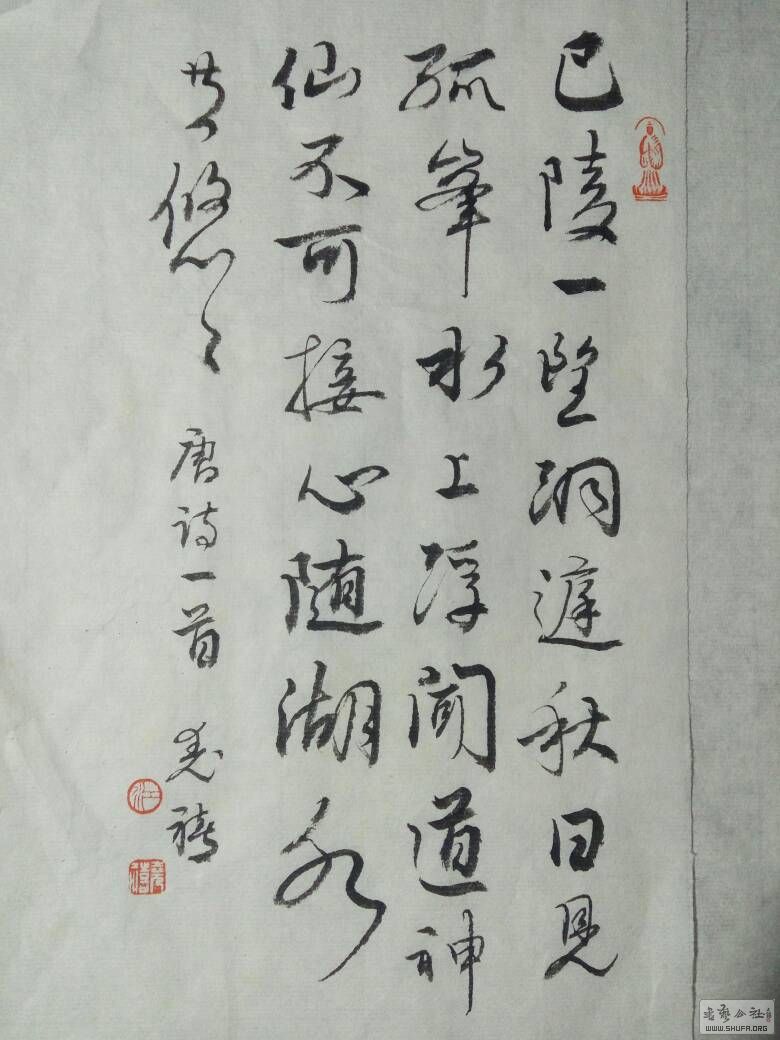 巴陵一望洞庭秋日見
孤峯水上浮聞道神
仙不可接心随湖水
共悠々 唐詩一首 堯禧
書藝公社
WWW.SHUFA.ORG